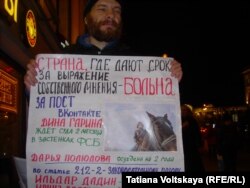 СТРАНА, ГДЕ ДАЮТ СРОК
ЗА ВЫРАЖЕНИЕ
СОБСТВЕННОГО МНЕНИЯ-БОЛЬНА
ЗА ПОСТ
ВКОНТАКТЕ
ДИНА ГАРИНА
ЖДЁТ СУДА 2 МЕСЯЦА
В ЗАСТЕНКАХ ФСБ
ДАРЬЯ ПОЛЮДОВА осуждена на 2 года
по статье 212-2-
ИЛЬДАР ДАДИН
Tatiana Voltskaya (RFE/RL)